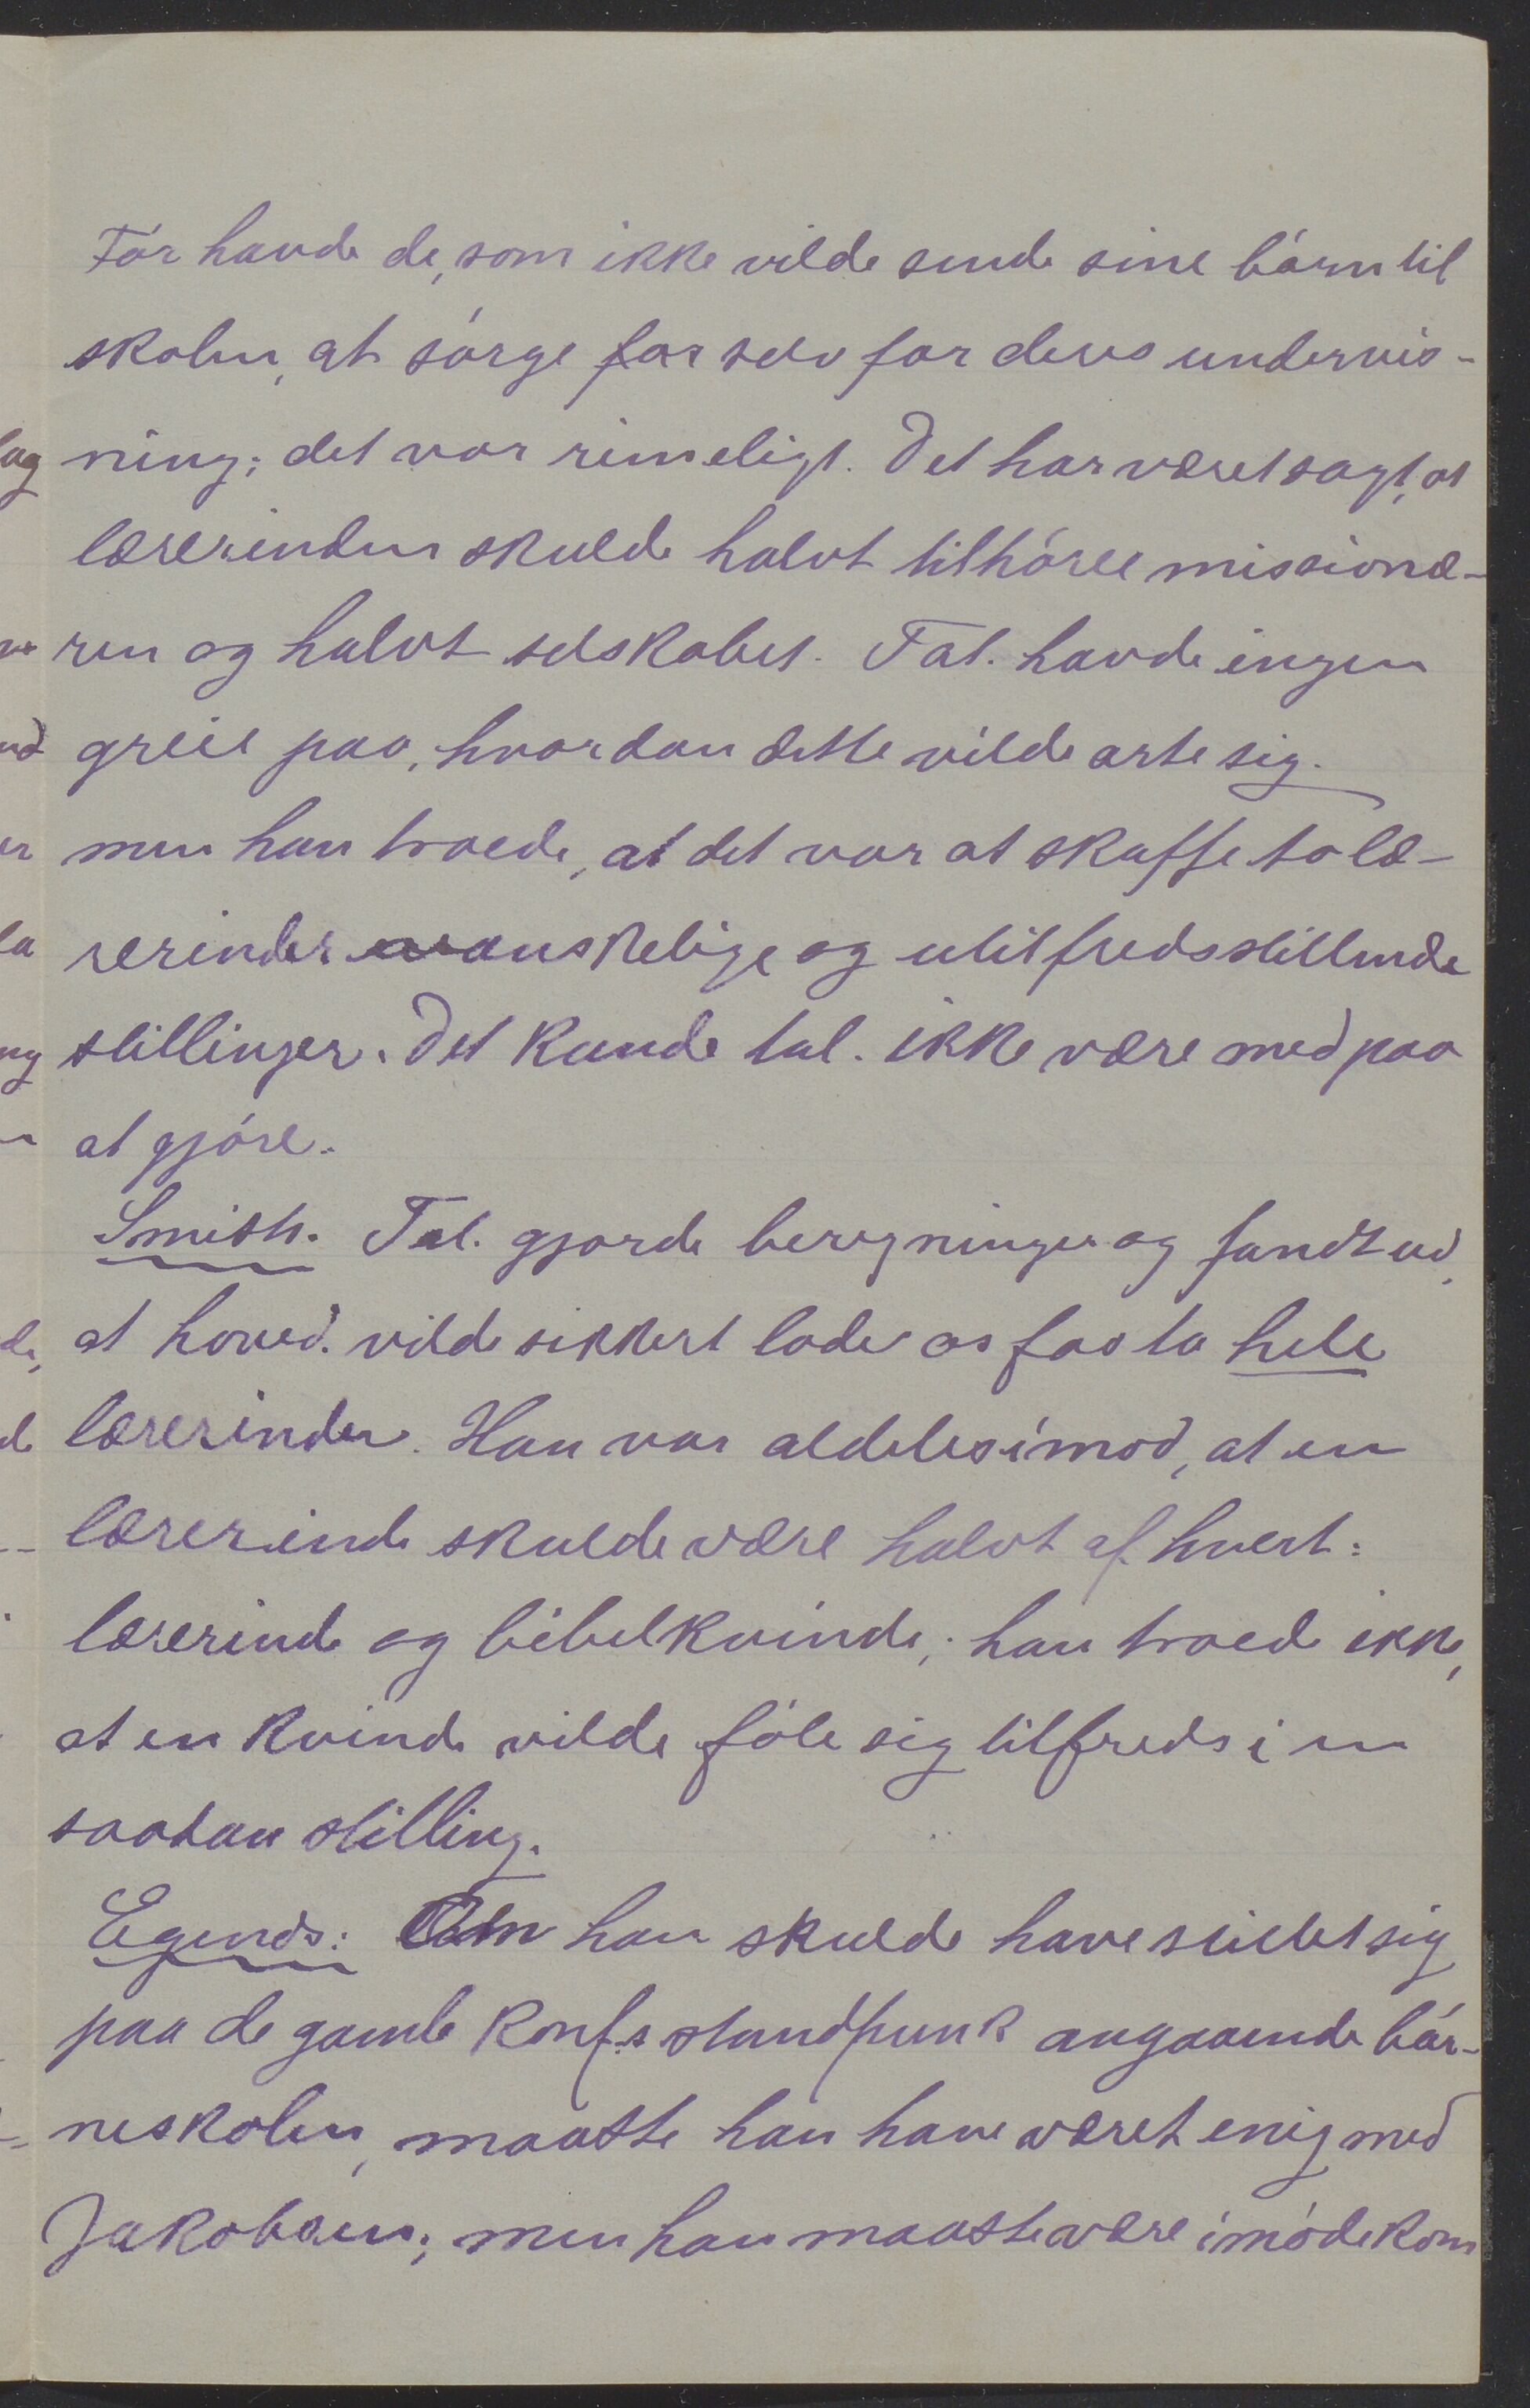 Fór havde de, som ikke vilde sende sine bórn til
skolen, at sórge for selv for deres undervis-
ning; det var rimeligt. Det har været sagt, at
lærerinden skulde halvt tilhóre missionæ-
ren og halvt selskabet. Tal. havde ingen
greie paa, hvordan dette vilde arte sig.
men han troede, at det var at skaffe to læ-
rerinder vanskelige og utilfredsstillende
stillinger. Det kunde tal. ikke være med paa
at gjóre.
Smith. Tal. gjorde beregninger og fandt ud,
at hoved. vilde sikkert lade os faa to hele
lærerinder. Han var aldeles imod, at en
lærerinde skulde være halvt af hvert:
lærerinde og bibelkvinde; han troede ikke,
at en kvinde vilde fóle sig tilfreds i en
saadan stilling.
Egends: Om han skulde have stillet sig
paa de gamle konf.s standpunk angaaende bór-
neskolen, maatte han have været enig med
Jakobsen; men han maatte være imódekom